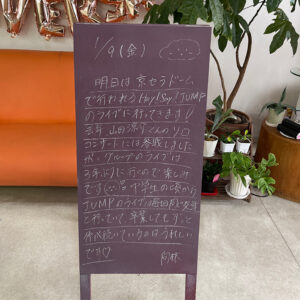 1/9(金)
明日は京セラドーム
で行われるHey!Say!JUMP
のライブに行ってきます!
去年 山田涼介くんのソロ
コンサートには参戦しました
が、グループのライブは
3年ぶりに行くので楽しみ
です 中学生の頃から
JUMPのライブは毎回友達
と行っていて 卒業しても
続いているのはうれしい
です♡